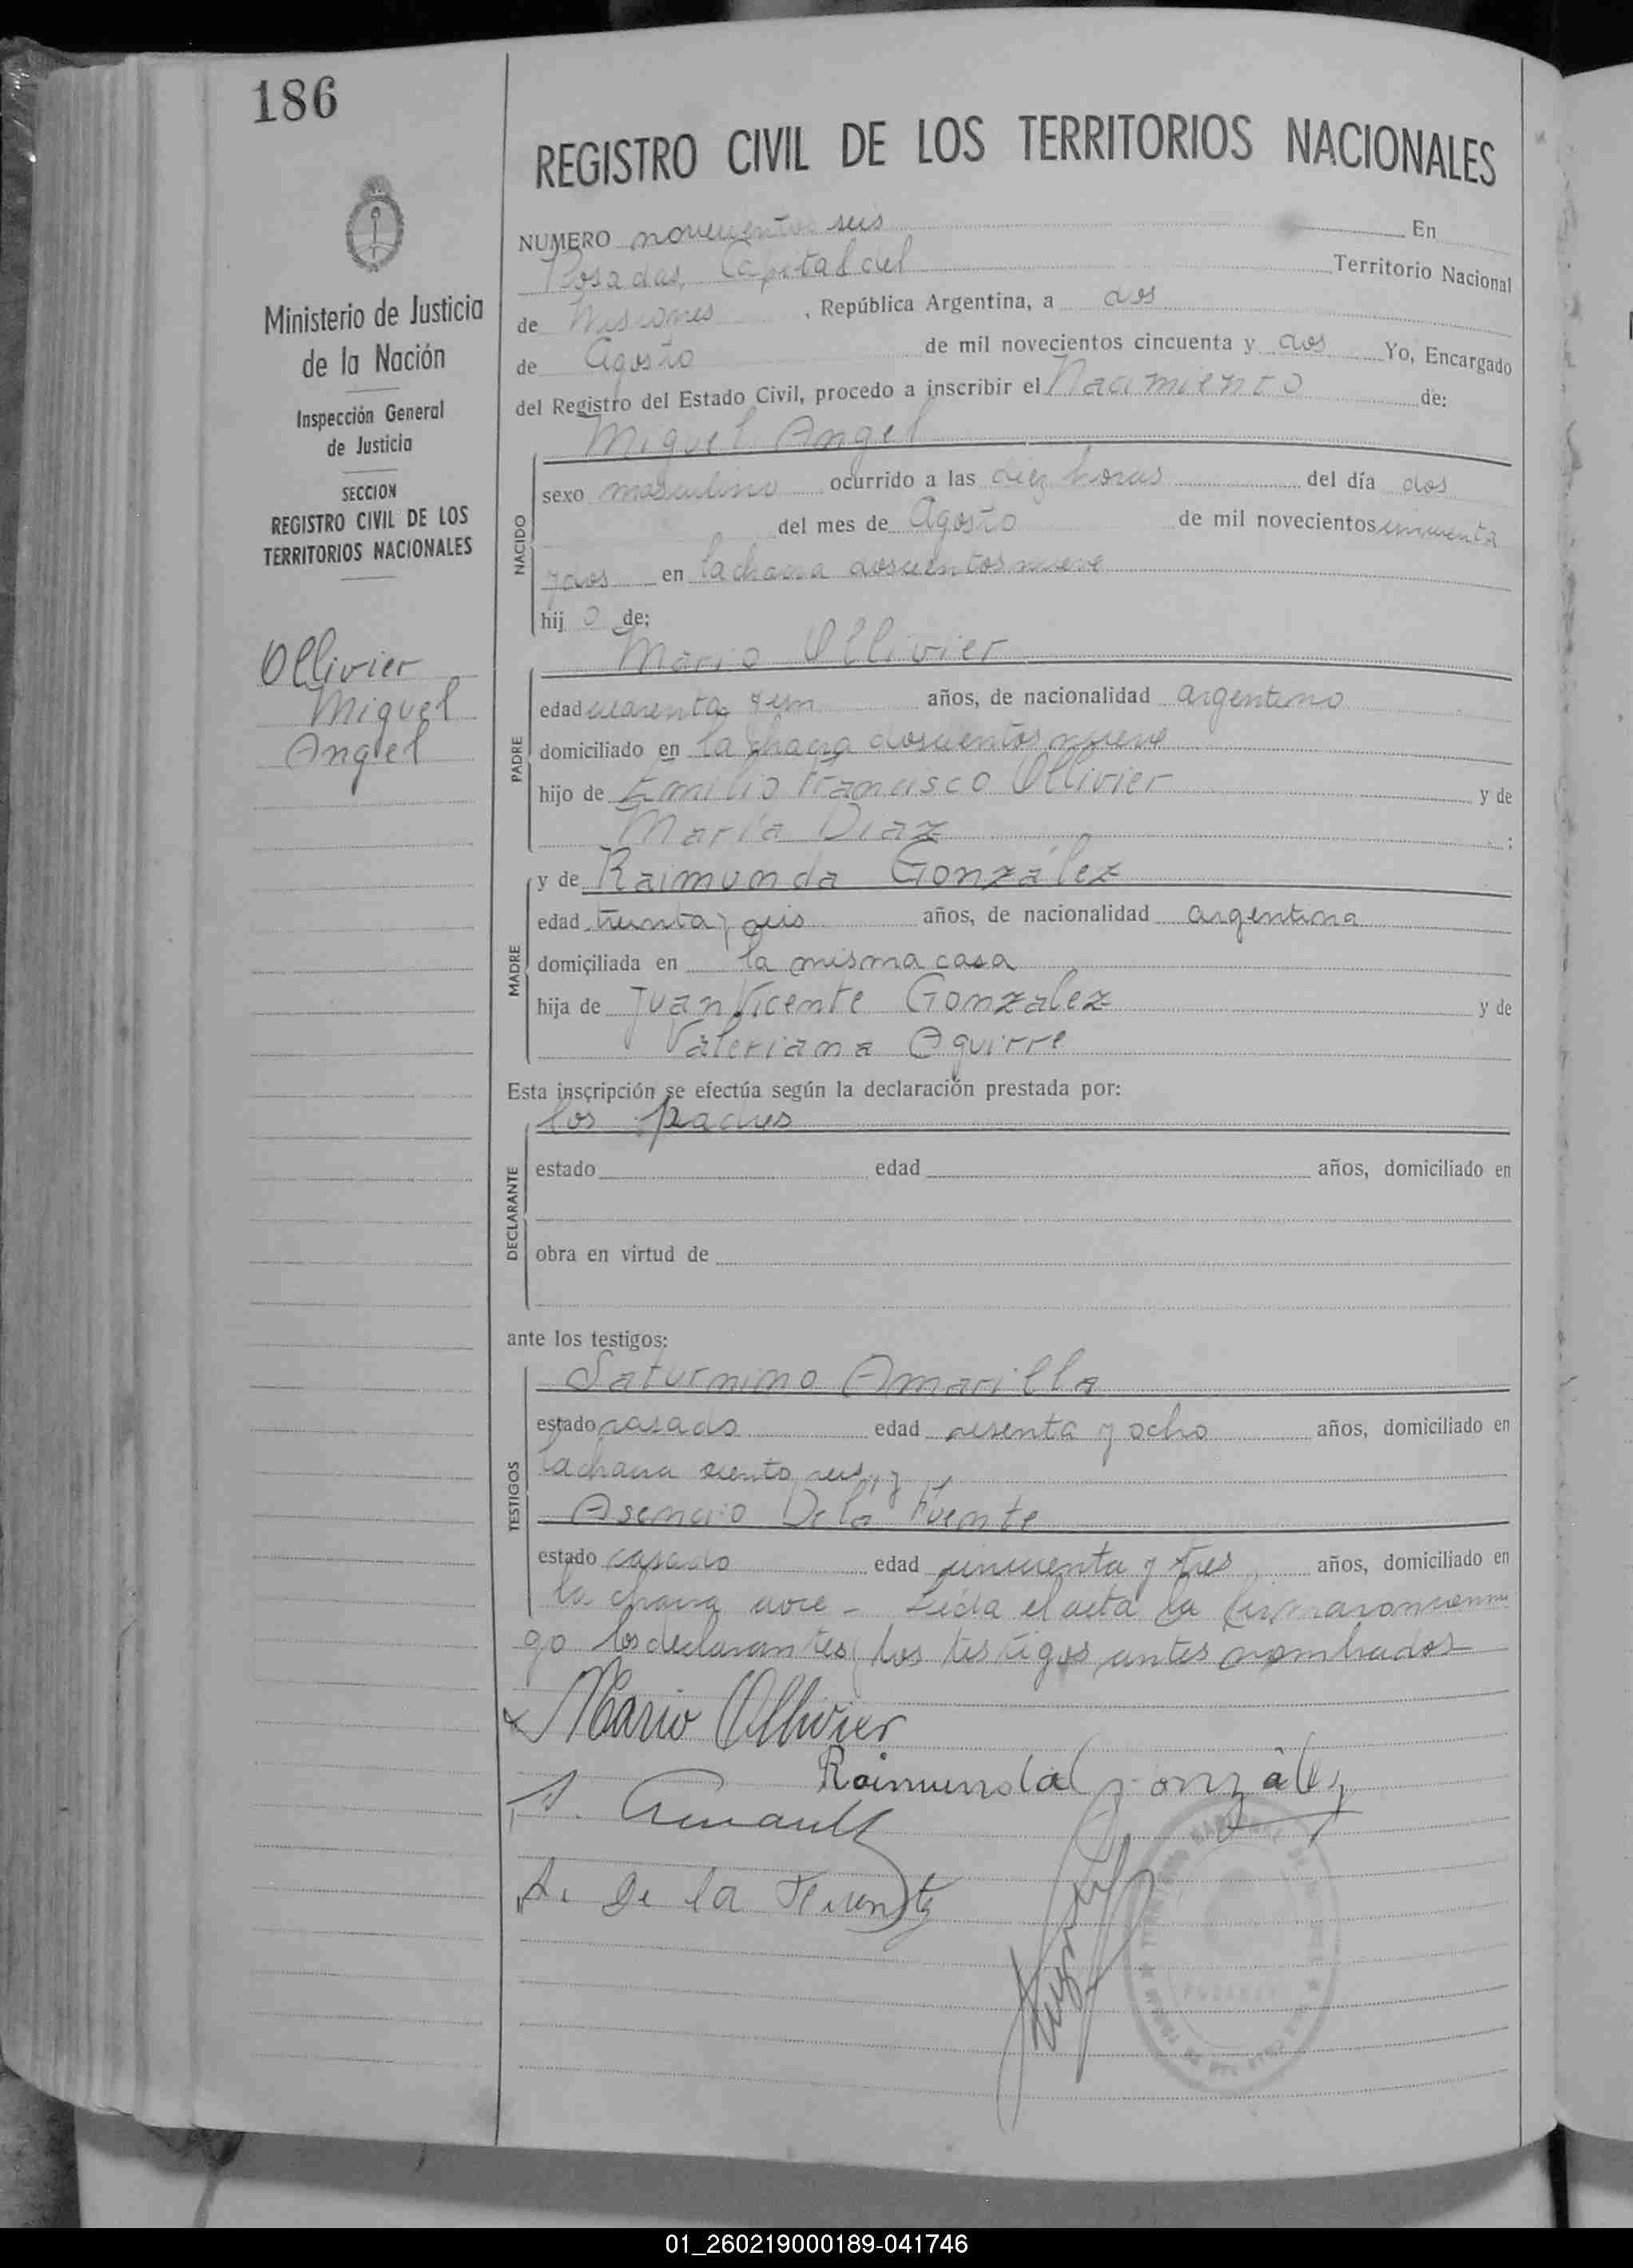 186
REGISTRO CIVIL DE LOS TERRITORIOS NACIONALES
NUMERO novecientos seis En
Posadas, Capital del Territorio Nacional
de Misiones, República Argentina, a dos
de Agosto de mil novecientos cincuenta y dos Yo, Encargado
del Registro del Estado Civil, procedo a inscribir el Nacimiento de:
Miguel Angel
NACIDO
sexo masculino ocurrido a las diez horas del día dos
del mes de Agosto de mil novecientos cincuenta
y dos en la chacra doscientos nueve
hij o de:
Mario Ollivier
PADRE
edad cuarenta y un años, de nacionalidad argentino
domiciliado en la chacra doscientos nueve
hijo de Emilio Francisco Ollivier y de
María Diaz ;
MADRE
y de Raimunda González
edad treinta y seis años, de nacionalidad argentina
domiciliada en la misma casa
hija de Juan Vicente Gonzalez y de
Valeriana Aguirre
Esta inscripción se efectúa según la declaración prestada por:
los padres
DECLARANTE
estado edad años, domiciliado en
obra en virtud de
ante los testigos:
Saturnino Amarilla
TESTIGOS
estado casado edad sesenta y ocho años, domiciliado en
la chacra ciento seis, y
Asencio De la Fuente
estado casado edad cincuenta y tres años, domiciliado en
la chacra once - Leída el acta la firmaron conmi
go los declarantes y los testigos antes nombrados
Mario Ollivier
Raimunda González
A. De la Fuente
Ministerio de Justicia
de la Nación
Inspección General
de Justicia
SECCION
REGISTRO CIVIL DE LOS
TERRITORIOS NACIONALES
Ollivier
Miguel
Angel
01_260219000189-041746